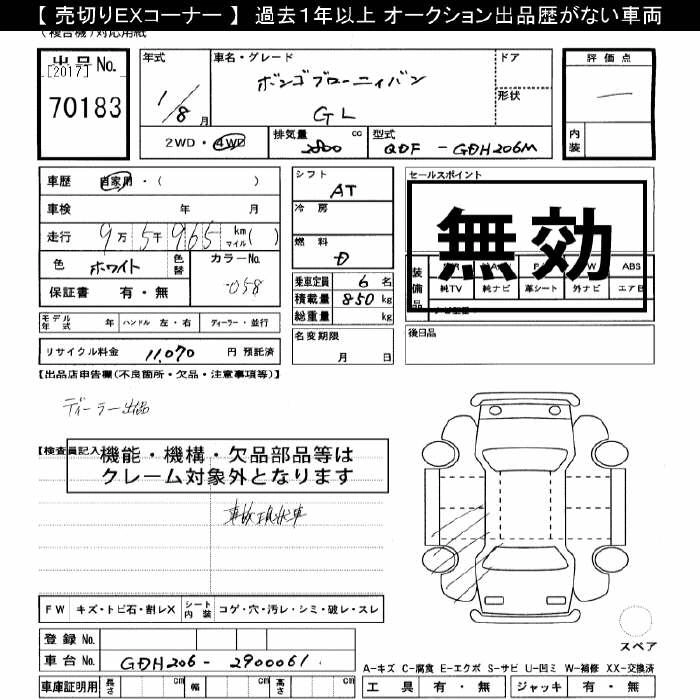 【 売切りEXコーナー 】 過去1年以上 オークション出品歴がない車両
(複合機)対応用紙
出品No.
[2017]
70183
年式
1/8月
車名・グレード
ボンゴブローニィバン
GL
ドア
形状
評価点
―
内装
2WD・4WD
排気量 2800 cc
型式 QDF - GDH206M
車歴 自家用・( )
車検 年 月
走行 9万5千965 km マイル( )
色 ホワイト
色替
カラーNo. 058
保証書 有・無
シフト AT
冷房
燃料 D
乗車定員 6 名
積載量 850 kg
総重量 kg
セールスポイント
無効
装備品
ABS
純TV 純ナビ 革シート 外ナビ エアB
モデル年式 年 ハンドル 左・右 ディーラー・並行
名変期限
月 日
後日品
リサイクル料金 11,070 円 預託済
【出品店申告欄(不良箇所・欠品・注意事項等)】
ディーラー出品
【検査員記入
機能・機構・欠品部品等は
クレーム対象外となります
事故現状車
FW キズ・トビ石・割レX シート内装 コゲ・穴・汚レ・シミ・破レ・スレ
スペア
登録No.
車台No. GDH206-2900061
A-キズ C-腐食 E-エクボ S-サビ U-凹ミ W-補修 XX-交換済
車庫証明用 長さ cm 幅 cm 高さ cm
工具 有・無 ジャッキ 有・無